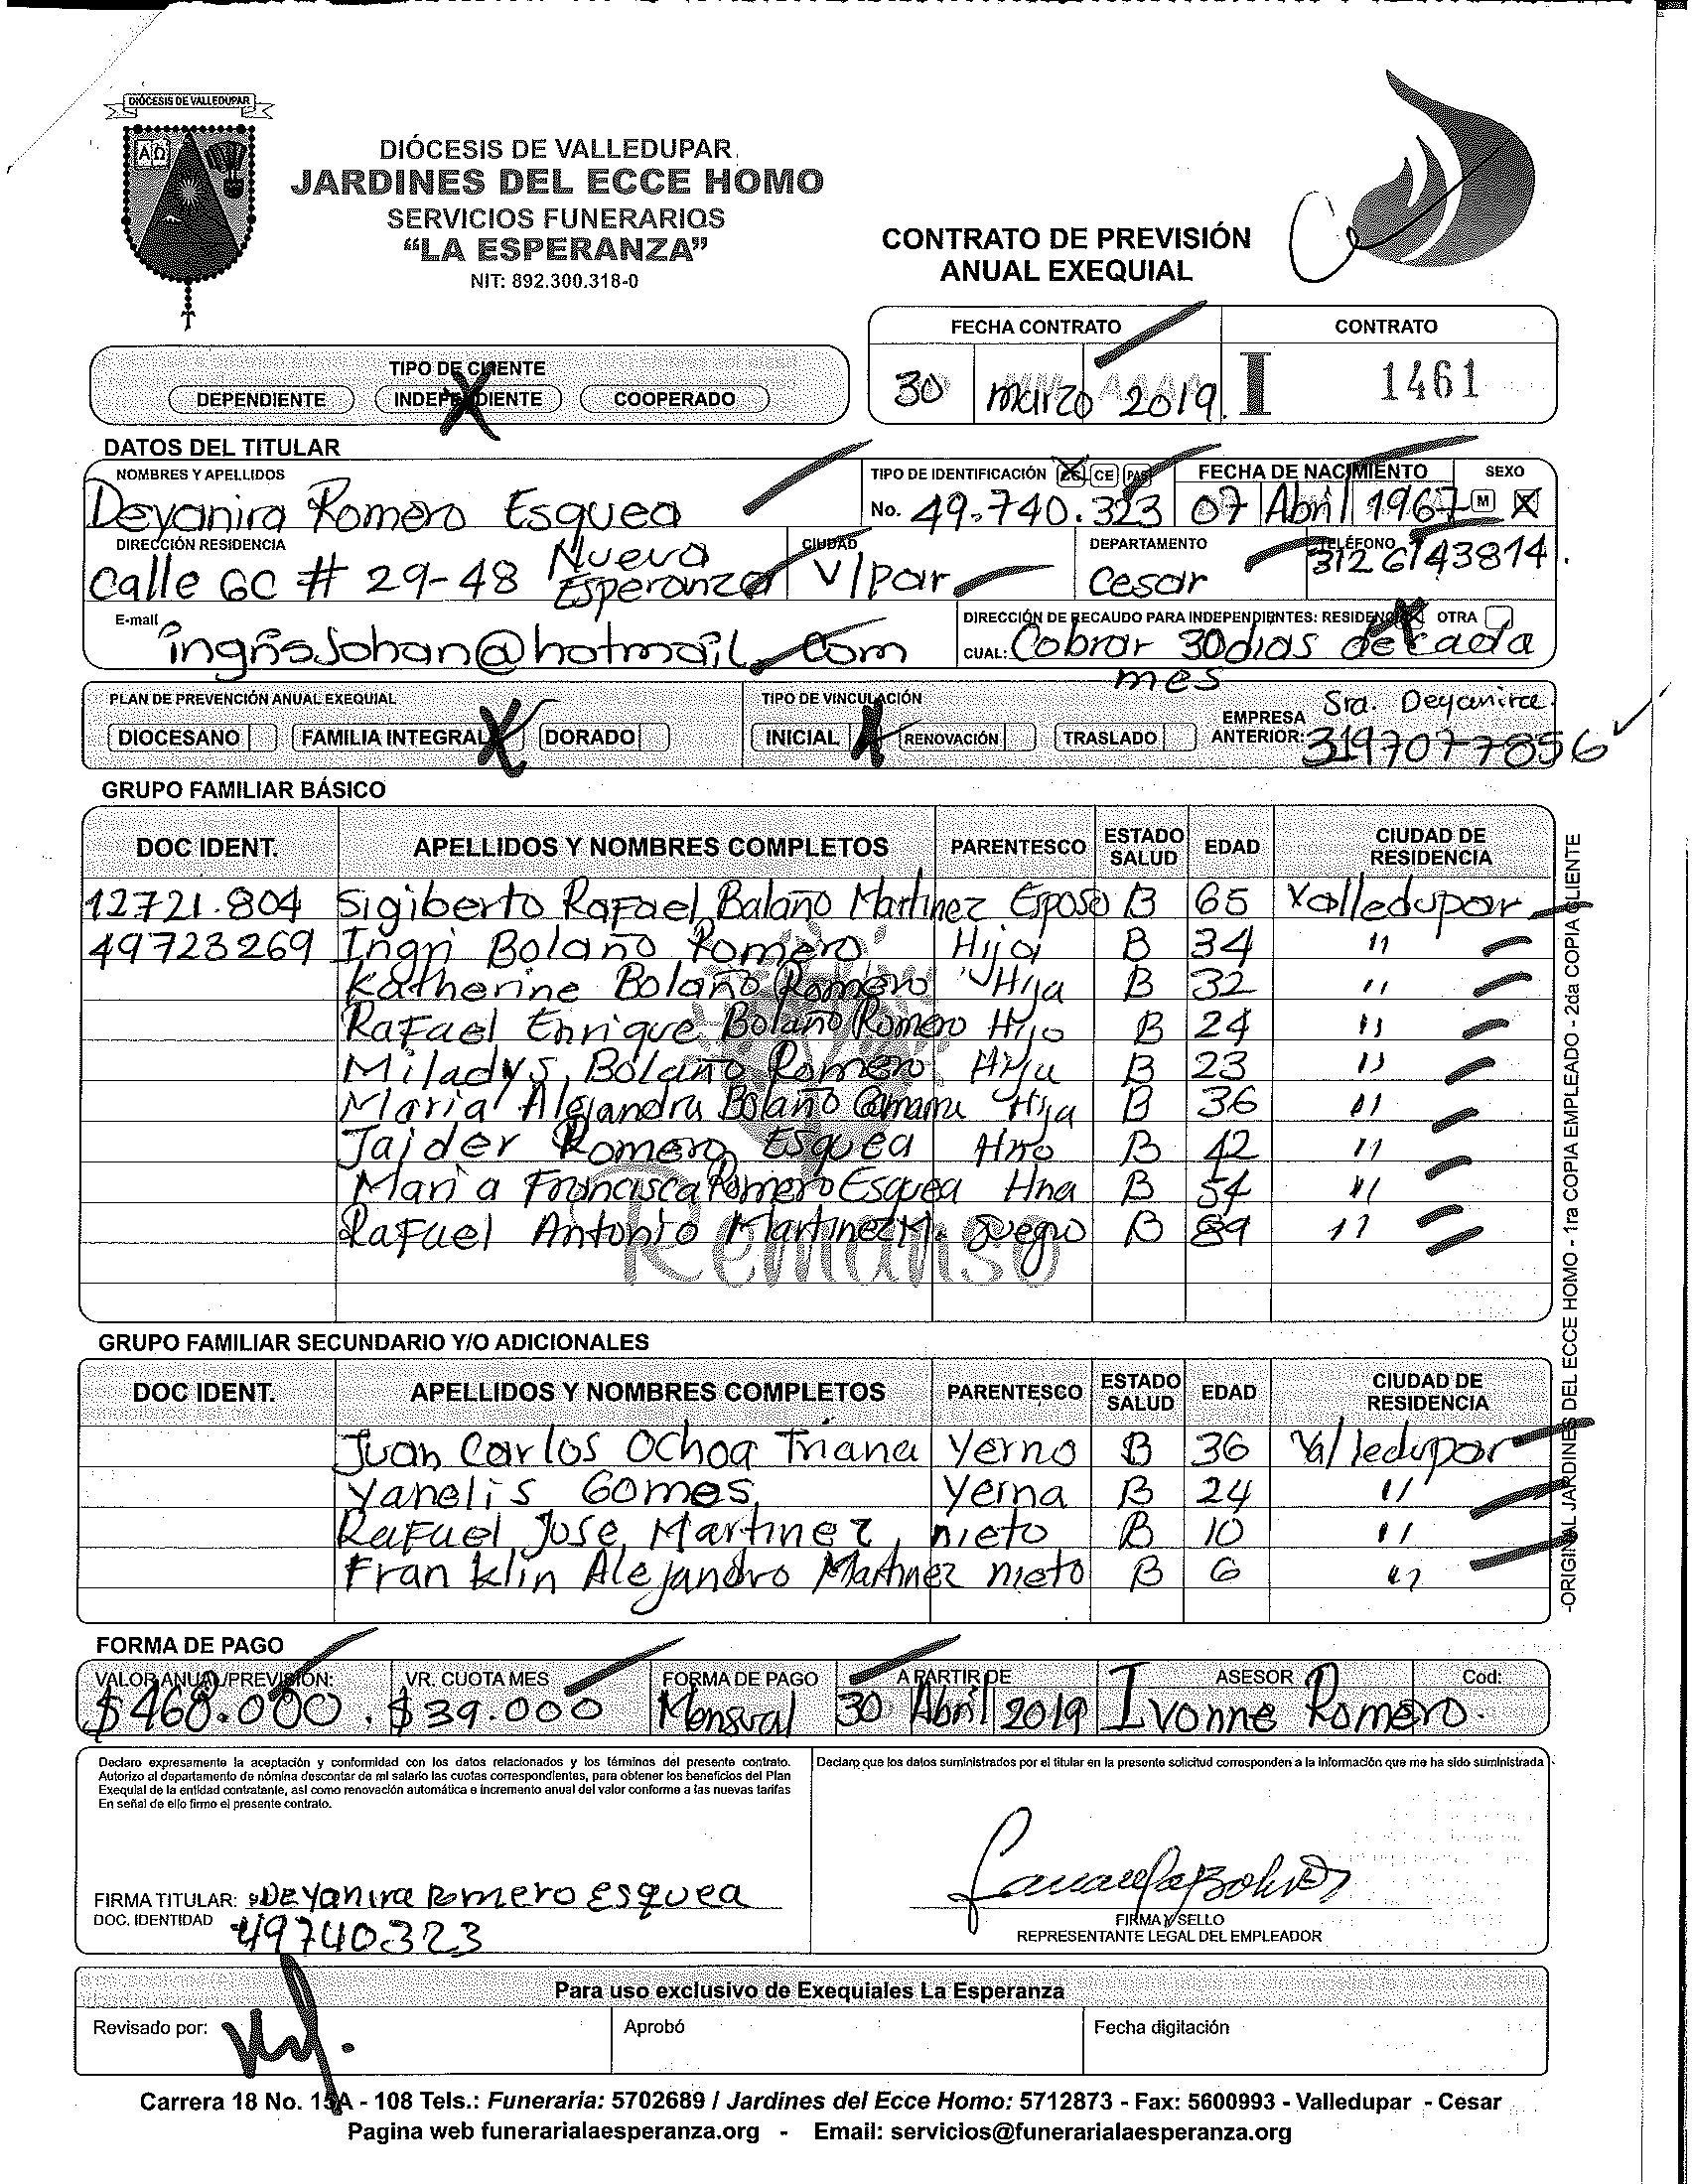 DIÓCESIS DE VALLEDUPAR
DIÓCESIS DE VALLEDUPAR
JARDINES DEL ECCE HOMO
SERVICIOS FUNERARIOS
“LA ESPERANZA”
NIT: 892.300.318-0
CONTRATO DE PREVISIÓN
ANUAL EXEQUIAL
FECHA CONTRATO CONTRATO
30 marzo 2019. I 1461
TIPO DE CLIENTE
DEPENDIENTE INDEPENDIENTE X COOPERADO
DATOS DEL TITULAR
NOMBRES Y APELLIDOS TIPO DE IDENTIFICACIÓN CC CE PAS FECHA DE NACIMIENTO SEXO
Deyanira Romero Esquea No. 49.740.323 07 Abril 1967 M X
DIRECCIÓN RESIDENCIA CIUDAD DEPARTAMENTO TELÉFONO
Calle 6C # 29-48 Nueva Esperanza V/par Cesar 3126143814.
E-mail DIRECCIÓN DE RECAUDO PARA INDEPENDIENTES: RESIDENCIA X OTRA
ingrisJohan@hotmail.com CUAL: Cobrar 30 dias de cada mes
PLAN DE PREVENCIÓN ANUAL EXEQUIAL TIPO DE VINCULACIÓN
DIOCESANO FAMILIA INTEGRAL X DORADO INICIAL X RENOVACIÓN TRASLADO EMPRESA ANTERIOR: Sra. Deyanira 3197077856
GRUPO FAMILIAR BÁSICO
DOC IDENT. APELLIDOS Y NOMBRES COMPLETOS PARENTESCO ESTADO SALUD EDAD CIUDAD DE RESIDENCIA
12721.804 Sigiberto Rafael Balaño Martinez Esposo B 65 Valledupar
49723269 Ingri Bolaño Romero Hija B 34 "
Katherine Bolaño Romero Hija B 32 "
Rafael Enrique Bolaño Romero Hijo B 24 "
Miladys Bolaño Romero Hija B 23 "
Maria Alejandra Bolaño Hija B 36 "
Jaider Romero Esquea Hno B 42 "
Maria Francisca Romero Esquea Hna B 54 "
Rafael Antonio Martinez M. Suegro B 89 "
Remanso
GRUPO FAMILIAR SECUNDARIO Y/O ADICIONALES
DOC IDENT. APELLIDOS Y NOMBRES COMPLETOS PARENTESCO ESTADO SALUD EDAD CIUDAD DE RESIDENCIA
Juan Carlos Ochoa Triana Yerno B 36 Valledupar
Yanelis Gomes Yerna B 24 "
Rafael Jose Martinez nieto B 10 "
Franklin Alejandro Martinez nieto B 6 "
-ORIGINAL JARDINES DEL ECCE HOMO - 1ra COPIA EMPLEADO - 2da COPIA CLIENTE
FORMA DE PAGO
VALOR ANUAL/PREVISIÓN: VR. CUOTA MES FORMA DE PAGO A PARTIR DE ASESOR Cod:
$468.000. $39.000 Mensual 30 Abril 2019 Ivonne Romero.
Declaro expresamente la aceptación y conformidad con los datos relacionados y los términos del presente contrato.
Autorizo al departamento de nómina descontar de mi salario las cuotas correspondientes, para obtener los beneficios del Plan
Exequial de la entidad contratante, así como renovación automática e incremento anual del valor conforme a las nuevas tarifas
En señal de ello firmo el presente contrato.
Declaro que los datos suministrados por el titular en la presente solicitud corresponden a la información que me ha sido suministrada
FIRMA TITULAR: Deyanira Romero Esquea
DOC. IDENTIDAD 49740323
FIRMA Y SELLO
REPRESENTANTE LEGAL DEL EMPLEADOR
Para uso exclusivo de Exequiales La Esperanza
Revisado por: Aprobó Fecha digitación
Carrera 18 No. 15A - 108 Tels.: Funeraria: 5702689 / Jardines del Ecce Homo: 5712873 - Fax: 5600993 - Valledupar - Cesar
Pagina web funerarialaesperanza.org - Email: servicios@funerarialaesperanza.org